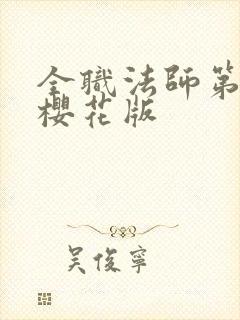 全職法師第
櫻花版
吴俊寧